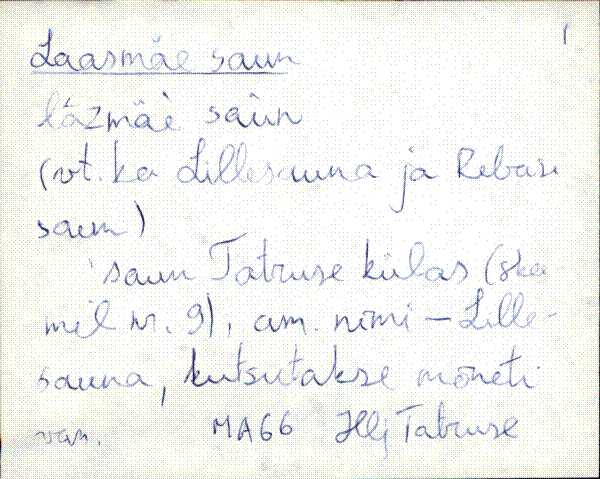 1
Laasmäe saun
lāzmäè saùn
(vt. ka Lillesauna ja Rebase
saun)
saun Tatruse külas (ska
mil nr. 9), am. nimi – Lille-
sauna, kutsutakse mõneti
van. MA66 Hlj Tatruse